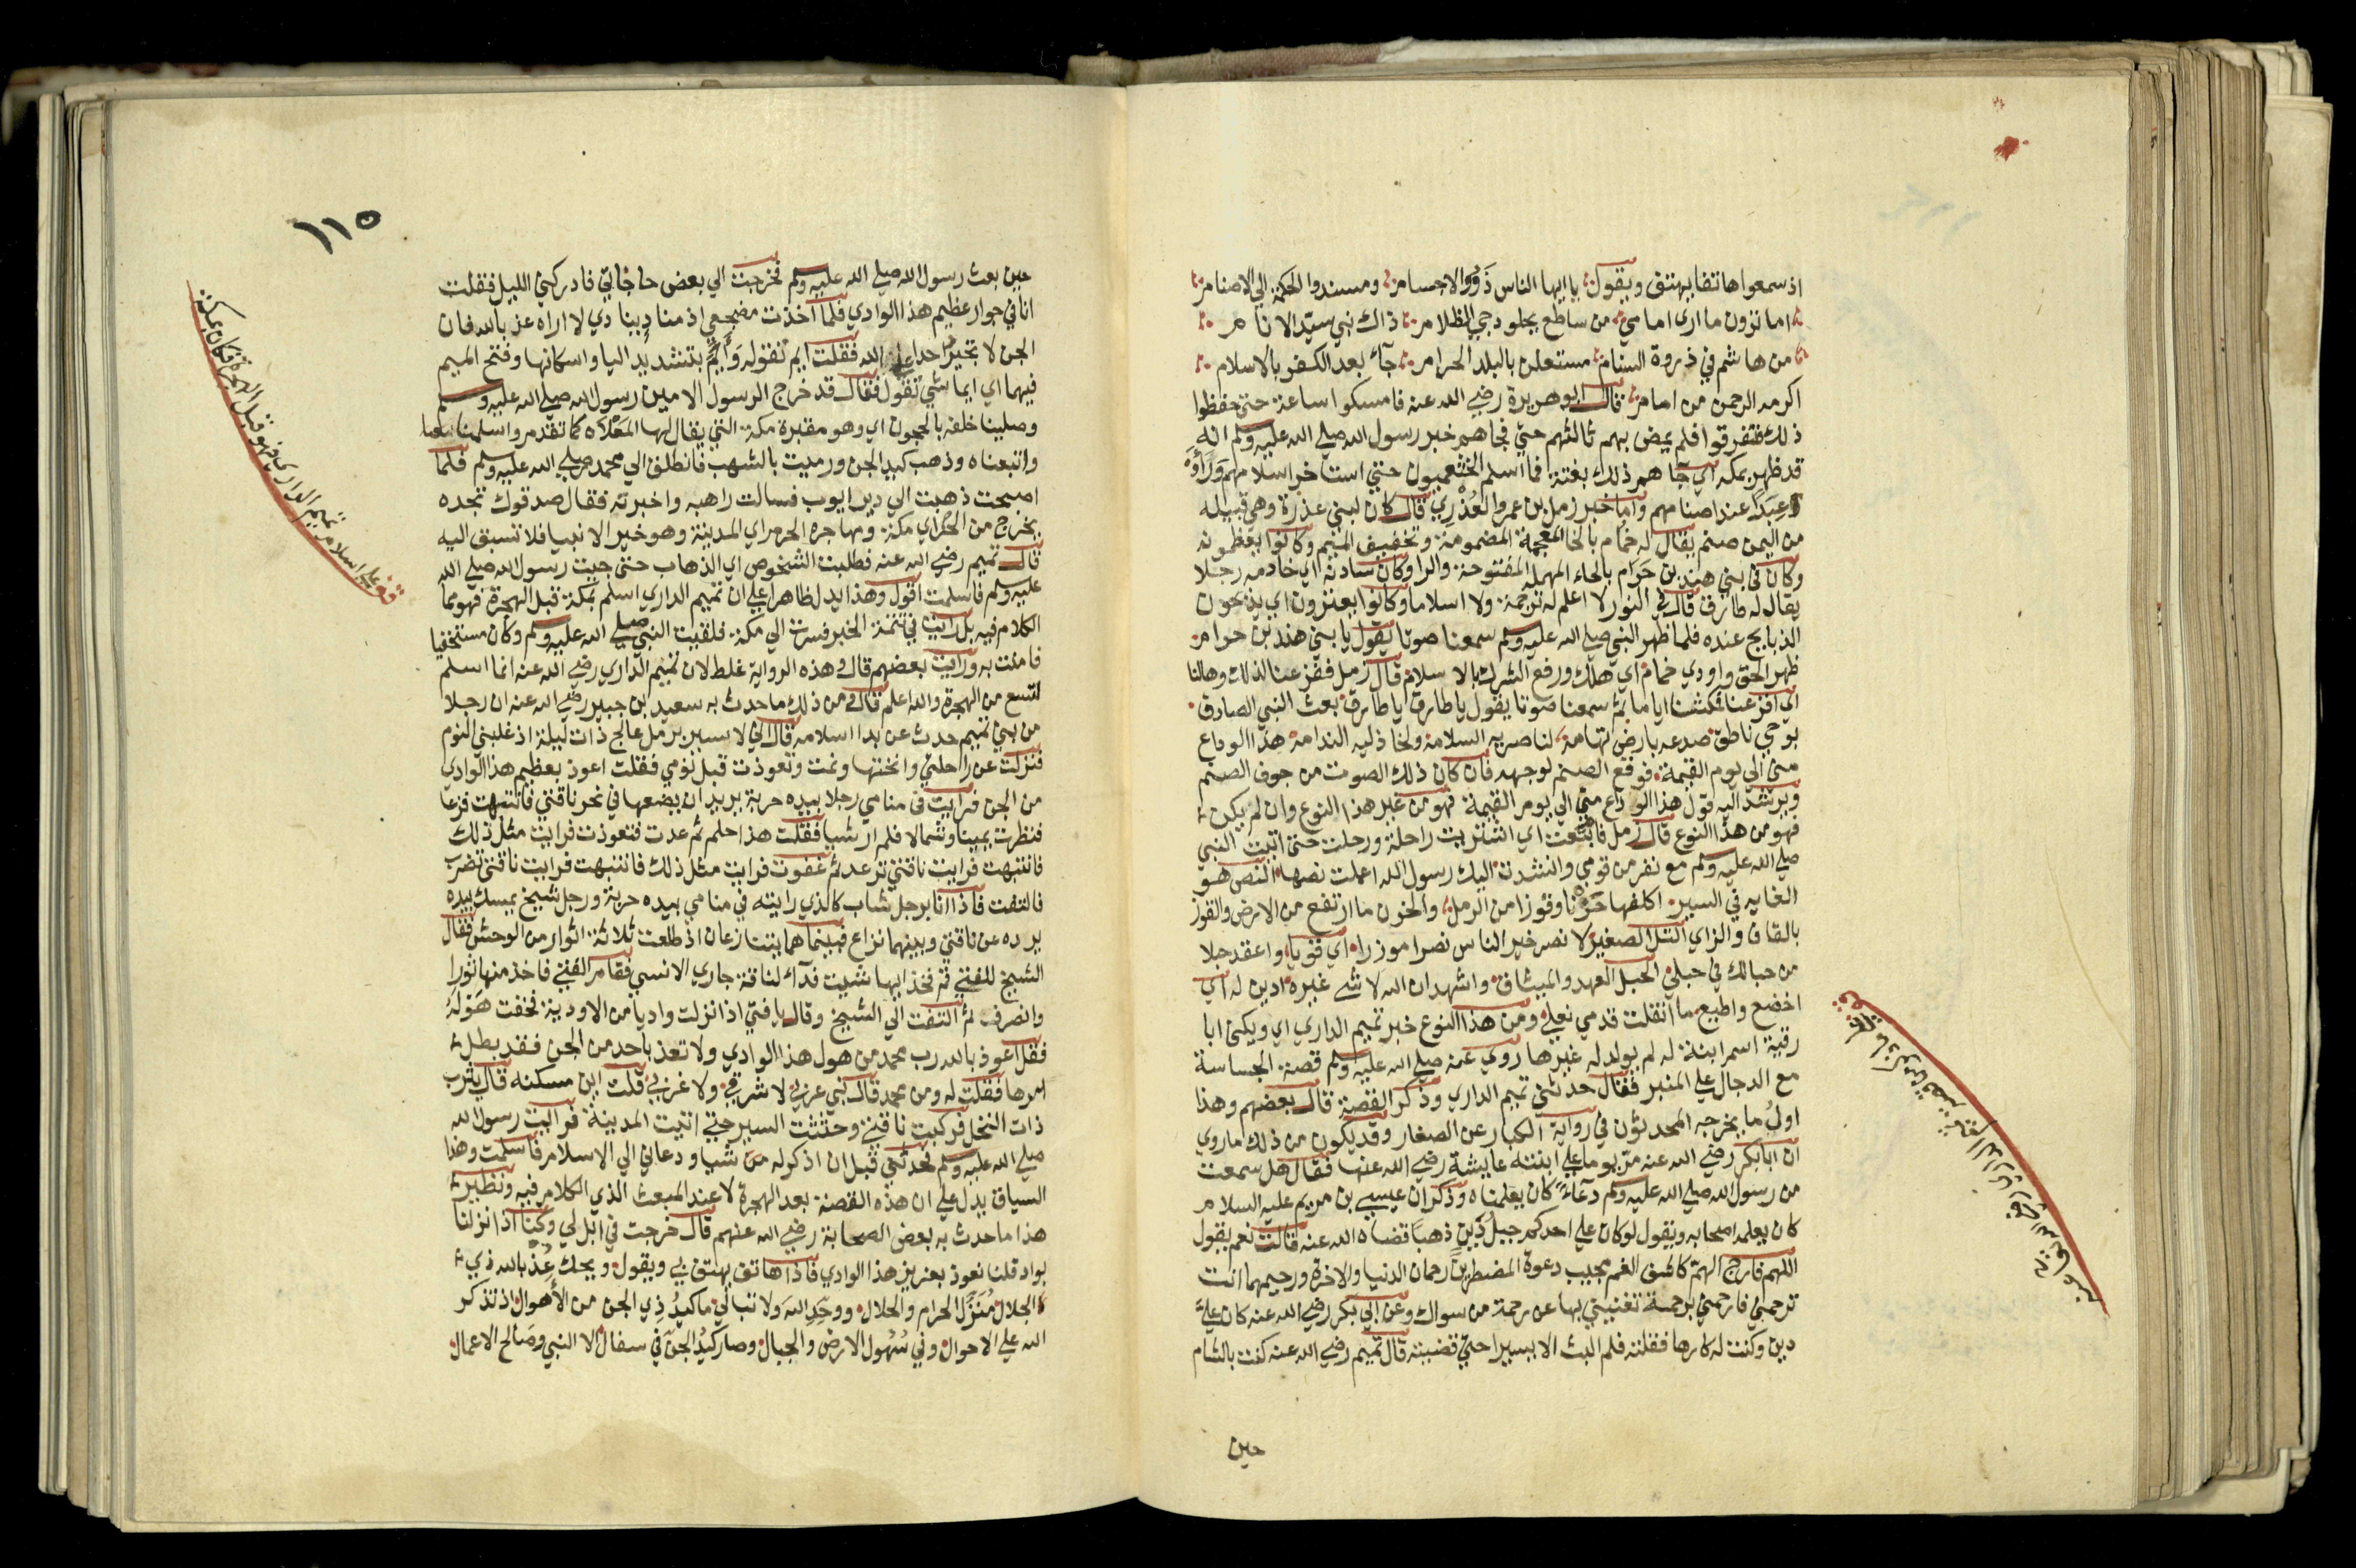 اذ سمعوا هاتفا يهتف ويقول يا ايها الناس ذوو الاجسام ومسندوا الحكمة الي الاصنام
اما ترون ما اري امامي من ساطع يجلو دجي الظلام ذاك نبي سيد الانام
من هاشم في ذروة السنام مستعلن بالبلد الحرام جآء بعد الكفر بالاسلام
اكرمه الرحمن من امام قال ابو هريرة رضي الله عنه فامسكوا ساعة حتي حفظوا
ذلك فتفرقوا فلم يمض بهم ثالثهم حتي فجاهم خبر رسول الله صلي الله عليه وسلم انه
قد ظهر بمكه اي جاهم ذلك بغتة فما اسلم الخثعميون حتي استاخر اسلامهم وراوا
عبدا عند اصنامهم واما خبر زمل بن عمرو العذري قال كان لبني عذرة وهي قبيله
من اليمن صنم يقال له خمام بالخا المعجمة المضمومة وتخفيف الميم وكانوا يعظمونه
وكان في بني هند بن حرام بالحاء المهمله المفتوحة والرا وكان سادنه اي خادمه رجلا
يقال له طارق قال في النور لا اعلم له ترجمة ولا اسلاما وكانوا يعترون اي يذبحون
الذبايح عنده فلما ظهر النبي صلي الله عليه وسلم سمعنا صوتا يقول يا بني هند بن حرام
ظهر الحق واودي خمام اي هلك ورفع الشرك بالاسلام قال زمل ففزعنا لذلك وهالنا
اي افزعنا فمكثنا اياما ثم سمعنا صوتا يقول يا طارق يا طارق بعث النبي الصادق
بوحي ناطق صدعه بارض تهامة لناصريه السلامة ولخاذليه الندامة هذا الوداع
مني الي يوم القيمة فوقع الصنم لوجهه فان كان ذلك الصوت من جوف الصنم
ويرشد اليه قول هذا الوداع مني الي يوم القيمة فهو من غير هذا النوع وان لم يكن
فهو من هذا النوع قال زمل فابتعت اي اشتريت راحلة ورحلت حتي اتيت النبي
صلي الله عليه وسلم مع نفر من قومي وانشدت اليك رسول الله اعملت نصها النص هو
الغايه في السير اكلفها حزنا وقوزا من الرمل والحزن ما ارتفع من الارض والقوز
بالقاف والزاي التل الصغير لانصر خير الناس نصرا موزرا اي قويا واعقد حبلا
من حبالك في حبلي الحبل العهد والميثاق واشهد ان الله لا شي غيره ادين له اي
اخضع واطيع ما اثقلت قدمي نعلي ومن هذا النوع خبر تميم الداري اي ويكني ابا
رقية اسم ابنة له لم يولد له غيرها روي عنه صلي الله عليه وسلم قصة الجساسة
مع الدجال علي المنبر فقال حدثني تميم الداري وذكر القصة قال بعضهم وهذا
اولي ما يخرجه المحدثون في رواية الكبار عن الصغار وقد يكون من ذلك ما روي
ان ابا بكر رضي الله عنه مر يوما علي ابنته عايشة رضي الله عنها فقال هل سمعت
من رسول الله صلي الله عليه وسلم دعآء كان يعلمناه وذكر ان عيسي بن مريم عليه السلام
كان يعلمه اصحابه ويقول لو كان علي احدكم جبل دين ذهبا قضاه الله عنه قالت نعم يقول
اللهم فارج الهم كاشف الغم مجيب دعوة المضطرين رحمان الدنيا والاخرة ورحيمهما انت
ترحمني فارحمني برحمة تغنيني بها عن رحمة من سواك وعن ابي بكر رضي الله عنه كان علي
دين وكنت له كارها فقلته فلم البث الا يسيرا حتي قضيته قال تميم رضي الله عنه كنت بالشام
حين
١١٥
حين بعث رسول الله صلي الله عليه وسلم فخرجت الي بعض حاجاتي فادركني الليل فقلت
انا في جوار عظيم هذا الوادي فلما اخذت مضجعي اذ مناد ينادي لا اراه عذ بالله فان
الجن لا تجير احدا علي الله فقلت ايم تقوله وايم بتشديد اليا واسكانها وفتح الميم
فيهما اي ايما شي تقول فقال قد خرج الرسول الامين رسول الله صلي الله عليه وسلم
وصلينا خلفه بالحجون اي وهو مقبرة مكة التي يقال لها المعلاه كما تقدم واسلمنا
واتبعناه وذهب كيد الجن ورميت بالشهب فانطلق الي محمد صلي الله عليه وسلم فلما
اصبحت ذهبت الي دير ايوب فسالت راهبه واخبرته فقال صدقوك تجده
يخرج من الحرم اي مكة ومهاجره الحرم اي المدينة وهو خير الانبيا فلا تسبق اليه
قال تميم رضي الله عنه فطلبت الشخوص اي الذهاب حتي جيت رسول الله صلي الله
عليه وسلم فاسلمت اقول وهذا يدل ظاهرا علي ان تميم الداري اسلم بمكة قبل الهجرة فهو مما
الكلام فيه بل رايت في تتمة الخبر فسرت الي مكة فلقيت النبي صلي الله عليه وسلم وكان مستخفيا
فامنت به ورايت بعضهم قال وهذه الرواية غلط لان تميم الداري رضي الله عنه انما اسلم
لتسع من الهجرة والله اعلم قال ومن ذلك ما حدث به سعيد بن جبير رضي الله عنه ان رجلا
من بني تميم حدث عن بدا اسلامه قال اني لاسير برمل عالج ذات ليلة اذ غلبني النوم
فنزلت عن راحلتي وانختها ونمت وتعوذت قبل نومي فقلت اعوذ بعظيم هذا الوادي
من الجن فرايت في منامي رجلا بيده حربة يريد ان يضعها في نحر ناقتي فانتبهت فزعا
فنظرت يمينا وشمالا فلم ار شيا فقلت هذا حلم ثم عدت فتعوذت فرايت مثل ذلك
فانتبهت فرايت ناقتي ترعد ثم غفوت فرايت مثل ذلك فانتبهت فرايت ناقتي تضرب
فالتفت فاذا انا برجل شاب كالذي رايته في منامي بيده حربة ورجل شيخ يمسك بيده
يرده عن ناقتي وبينهما نزاع فبينما هما يتنازعان اذ طلعت ثلاثة اثوار من الوحش فقال
الشيخ للفتي قم فخذ ايها شيت فدآء لناقة جاري الانسي فقام الفتي فاخذ منها ثورا
وانصرف ثم التفت الي الشيخ وقال يا فتي اذا نزلت واديا من الاودية فخفت هوله
فقل اعوذ بالله رب محمد من هول هذا الوادي ولا تعذ باحد من الجن فقد بطل
امرها فقلت له ومن محمد قال نبي عربي لا شرقي ولا غربي قلت اين مسكنه قال يثرب
ذات النخل فركبت ناقتي وحثثت السير حتي اتيت المدينة فرايت رسول الله
صلي الله عليه وسلم فحدثني قبل ان اذكر له منه شيا ودعاني الي الاسلام فاسلمت وهذا
السياق يدل علي ان هذه القصة بعد الهجرة لا عند المبعث الذي الكلام فيه ونظير
هذا ما حدث به بعض الصحابة رضي الله عنهم قال خرجت في ابل لي وكنا اذا نزلنا
بواد قلنا نعوذ بعزيز هذا الوادي فاذا هاتف يهتف بي ويقول ويحك عذ بالله ذي
الجلال منزل الحرام والحلال ووحد الله ولا تبالي ما كيد ذي الجن من الاهوال اذ تذكر
الله علي الاحوال وفي سهول الارض والجبال وصار كيد الجن في سفال الا النبي وصالح الاعمال